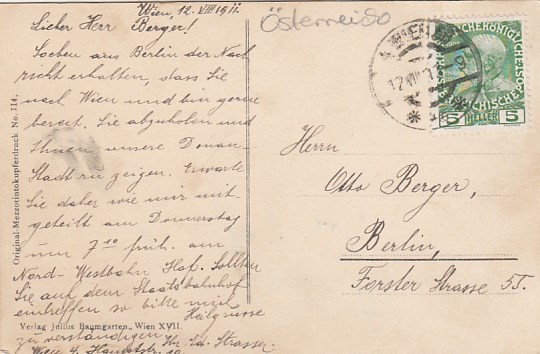 Wien, 12. VIII 1911.
Lieber Herr Berger!
Soeben aus Berlin der Nach
richt erhalten, dass Sie
nach Wien und bin gerne
bereit. Sie abzuholen und
Ihnen unsere Donau-
Stadt zu zeigen. Erwarte
Sie daher wie mir mit-
geteilt am Donnerstag
um 7 10 früh. am
Nord-Westbahn Hof. Sollten
Sie auf dem Staatsbahnhof
eintreffen so bitte mich
zu verständigen
Strasser
Wien 4.
Österreich
WIEN
12 VIII
KAISERLICHE KÖNIGLICHE
ÖSTERREICHISCHE POST
5 HELLER 5
Herrn
Otto Berger,
Berlin,
Forster Strasse 55
Original-Mezzotintokupferdruck No. 114.
Verlag Julius Baumgarten, Wien XVII.